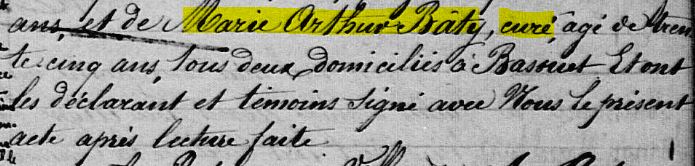 ans, et de Marie Arthur Bâty, curé agé de tren
te cinq ans, tous deux domiciliés à Bassuet Et ont
les déclarant et témoins signé avec Nous le présent
acte après lecture faite